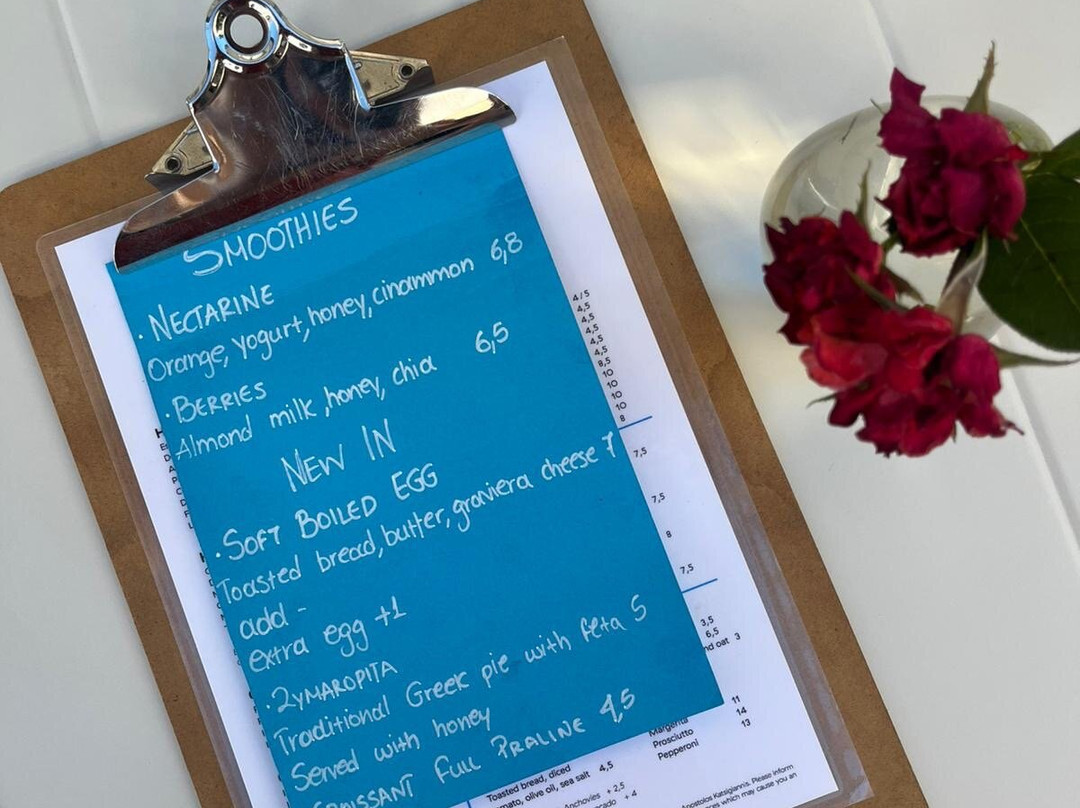 SMOOTHIES
· NECTARINE
Orange, yogurt, honey, cinammon 6,8
· BERRIES
Almond milk, honey, chia 6,5
NEW IN
· SOFT BOILED EGG
Toasted bread, butter, graviera cheese 7
add -
extra egg +1
· ZYMAROPITA
Traditional Greek pie with feta 5
Served with honey
CROISSANT FULL PRALINE 4,5
4/5
4,5
4,5
4,5
4,5
4,5
8,5
10
10
10
10
8
7,5
7,5
8
7,5
3,5
6,5
nd oat 3
11
Margerita 14
Prosciutto 13
Pepperoni
Toasted bread, diced
mato, olive oil, sea salt 4,5
Anchovies + 2,5
ocado + 4
Apostolos Katsigiannis. Please inform
ances which may cause you an